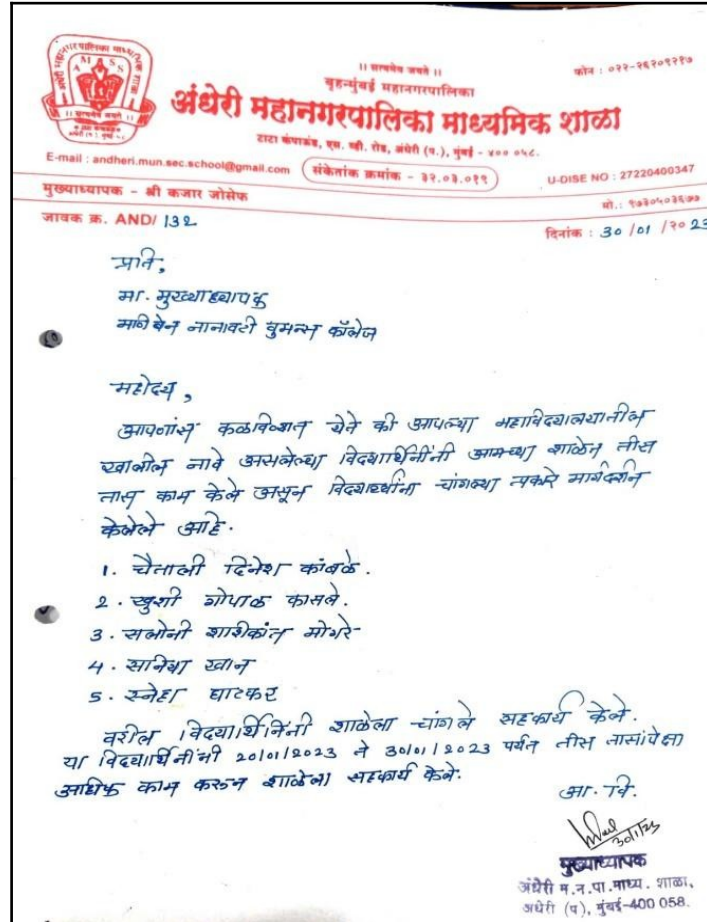 ॥ सत्यमेव जयते ॥
फोन : ०२२-२६२०९२१७
बृहन्मुंबई महानगरपालिका
A M S S
अंधेरी महानगरपालिका माध्यमिक शाळा
टाटा कंपाऊंड, एस. व्ही. रोड, अंधेरी (प.), मुंबई - ४०० ०५८.
E-mail : andheri.mun.sec.school@gmail.com
संकेतांक क्रमांक - ३२.०३.०१९
U-DISE NO : 27220400347
मुख्याध्यापक - श्री कजार जोसेफ
मो.: ९७३०५०३६७७
जावक क्र. AND/ 132
दिनांक : 30 /01 /२० 23
प्रति,
मा. मुख्याध्यापक
मणिबेन नानावटी वुमन्स कॉलेज
महोदय,
आपणांस कळविण्यात येते की आपल्या महाविद्यालयातील
खालील नावे असलेल्या विद्यार्थिनींनी आमच्या शाळेत तीस
तास काम केले असून विद्यार्थ्यांना चांगल्या प्रकारे मार्गदर्शन
केलेले आहे.
1. चैताली दिनेश कांबळे.
2. खुशी गोपाळ कासले.
3. सलोनी शशिकांत मोगरे
4. सानिया खान
5. स्नेहा घाटकर
वरील विद्यार्थिनिंनी शाळेला चांगले सहकार्य केले.
या विद्यार्थिनींनी 20/01/2023 ते 30/01/2023 पर्यंत तीस तासांपेक्षा
अधिक काम करून शाळेला सहकार्य केले.
आ. वि.
30/1/23
मुख्याध्यापक
अंधेरी म.न.पा.माध्य. शाळा,
अंधेरी (प), मुंबई-400 058.